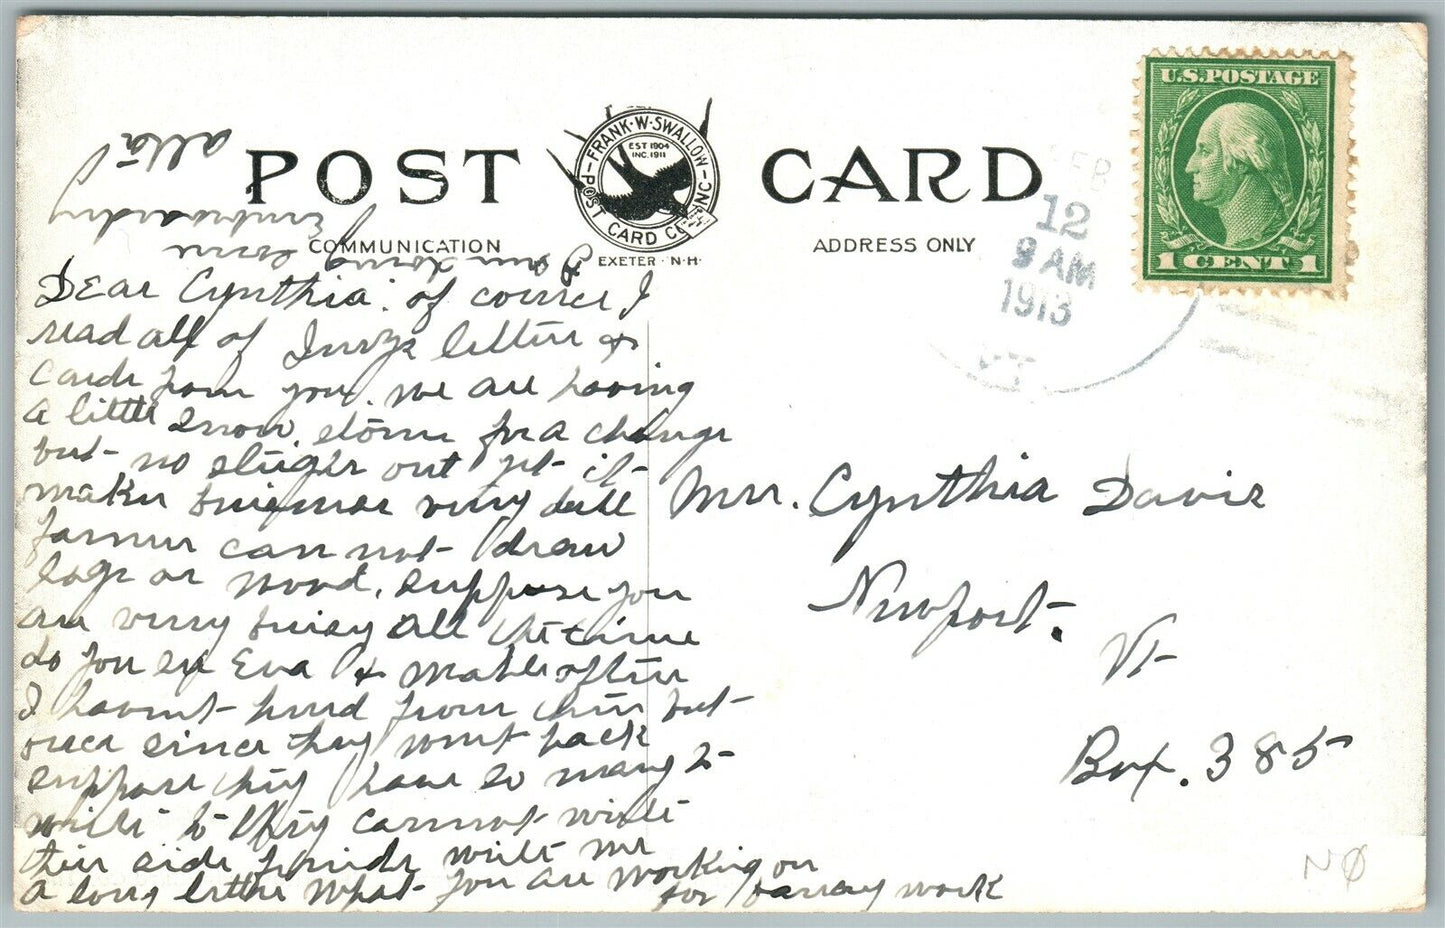 POST CARD
FRANK·W·SWALLOW
POST CARD CO. INC.
EST 1904
INC. 1911
EXETER · N·H·
COMMUNICATION
ADDRESS ONLY
U.S. POSTAGE
1 CENT 1
FEB
12
9 AM
1913
VT
Dear Cynthia. of course I
read all of letters &
cards from you. we are having
a little snow storm for a change
but no out yet it
makes very dull
farmers can not draw
logs or wood. suppose you
are very busy all the time
do you see Eva & Mable often
I havent heard from them but
once since they went back
suppose they have so many to
write to they cannot write
their side friends write me
a long letter what you are working on
for fancy work
I am doing some
Embroidry
alta
Mrs. Cynthia Davis
Newport.
Vt
Box. 385
NØ